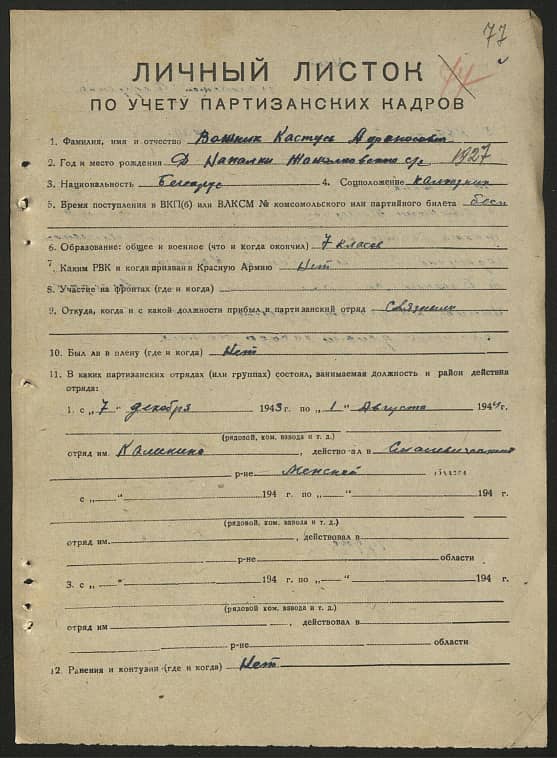 77
14
ЛИЧНЫЙ ЛИСТОК
ПО УЧЕТУ ПАРТИЗАНСКИХ КАДРОВ
1. Фамилия, имя и отчество Кастусь
2. Год и место рождения Д 1927
3. Национальность Беларус 4. Соцположение колхозник
5. Время поступления в ВКП(б) или ВЛКСМ № комсомольского или партийного билета
6. Образование: общее и военное (что и когда окончил) 7 класов
7. Каким РВК и когда призван в Красную Армию Нет
8. Участие на фронтах (где и когда)
9. Откуда, когда и с какой должности прибыл в партизанский отряд
10. Был ли в плену (где и когда) Нет
11. В каких партизанских отрядах (или группах) состоял, занимаемая должность и район действия
отряда:
1. с „7" декабря 1943 г. по „1" Августа 1944 г.
(рядовой, ком. взвода и т. д.)
отряд им. Калинина, действовал в
р-не Менской области
с „ " 194 г. по „ " 194 г.
(рядовой, ком. взвода и т. д.)
отряд им. , действовал в
р-не области
3. с „ " 194 г. по „ " 194 г.
(рядовой, ком. взвода и т. д.)
отряд им. , действовал в
р-не области
12. Ранения и контузии (где и когда) Нет